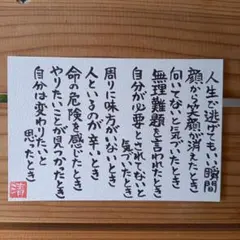 人生で逃げてもいい瞬間
顔から笑顔が消えたとき
向いてないと気づいたとき
無理難題を言われたとき
自分が必要とされてないと
気づいたとき
周りに味方がいないとき
人といるのが辛いとき
命の危険を感じたとき
やりたいことが見つかったとき
自分は変わりたいと
思ったとき
清